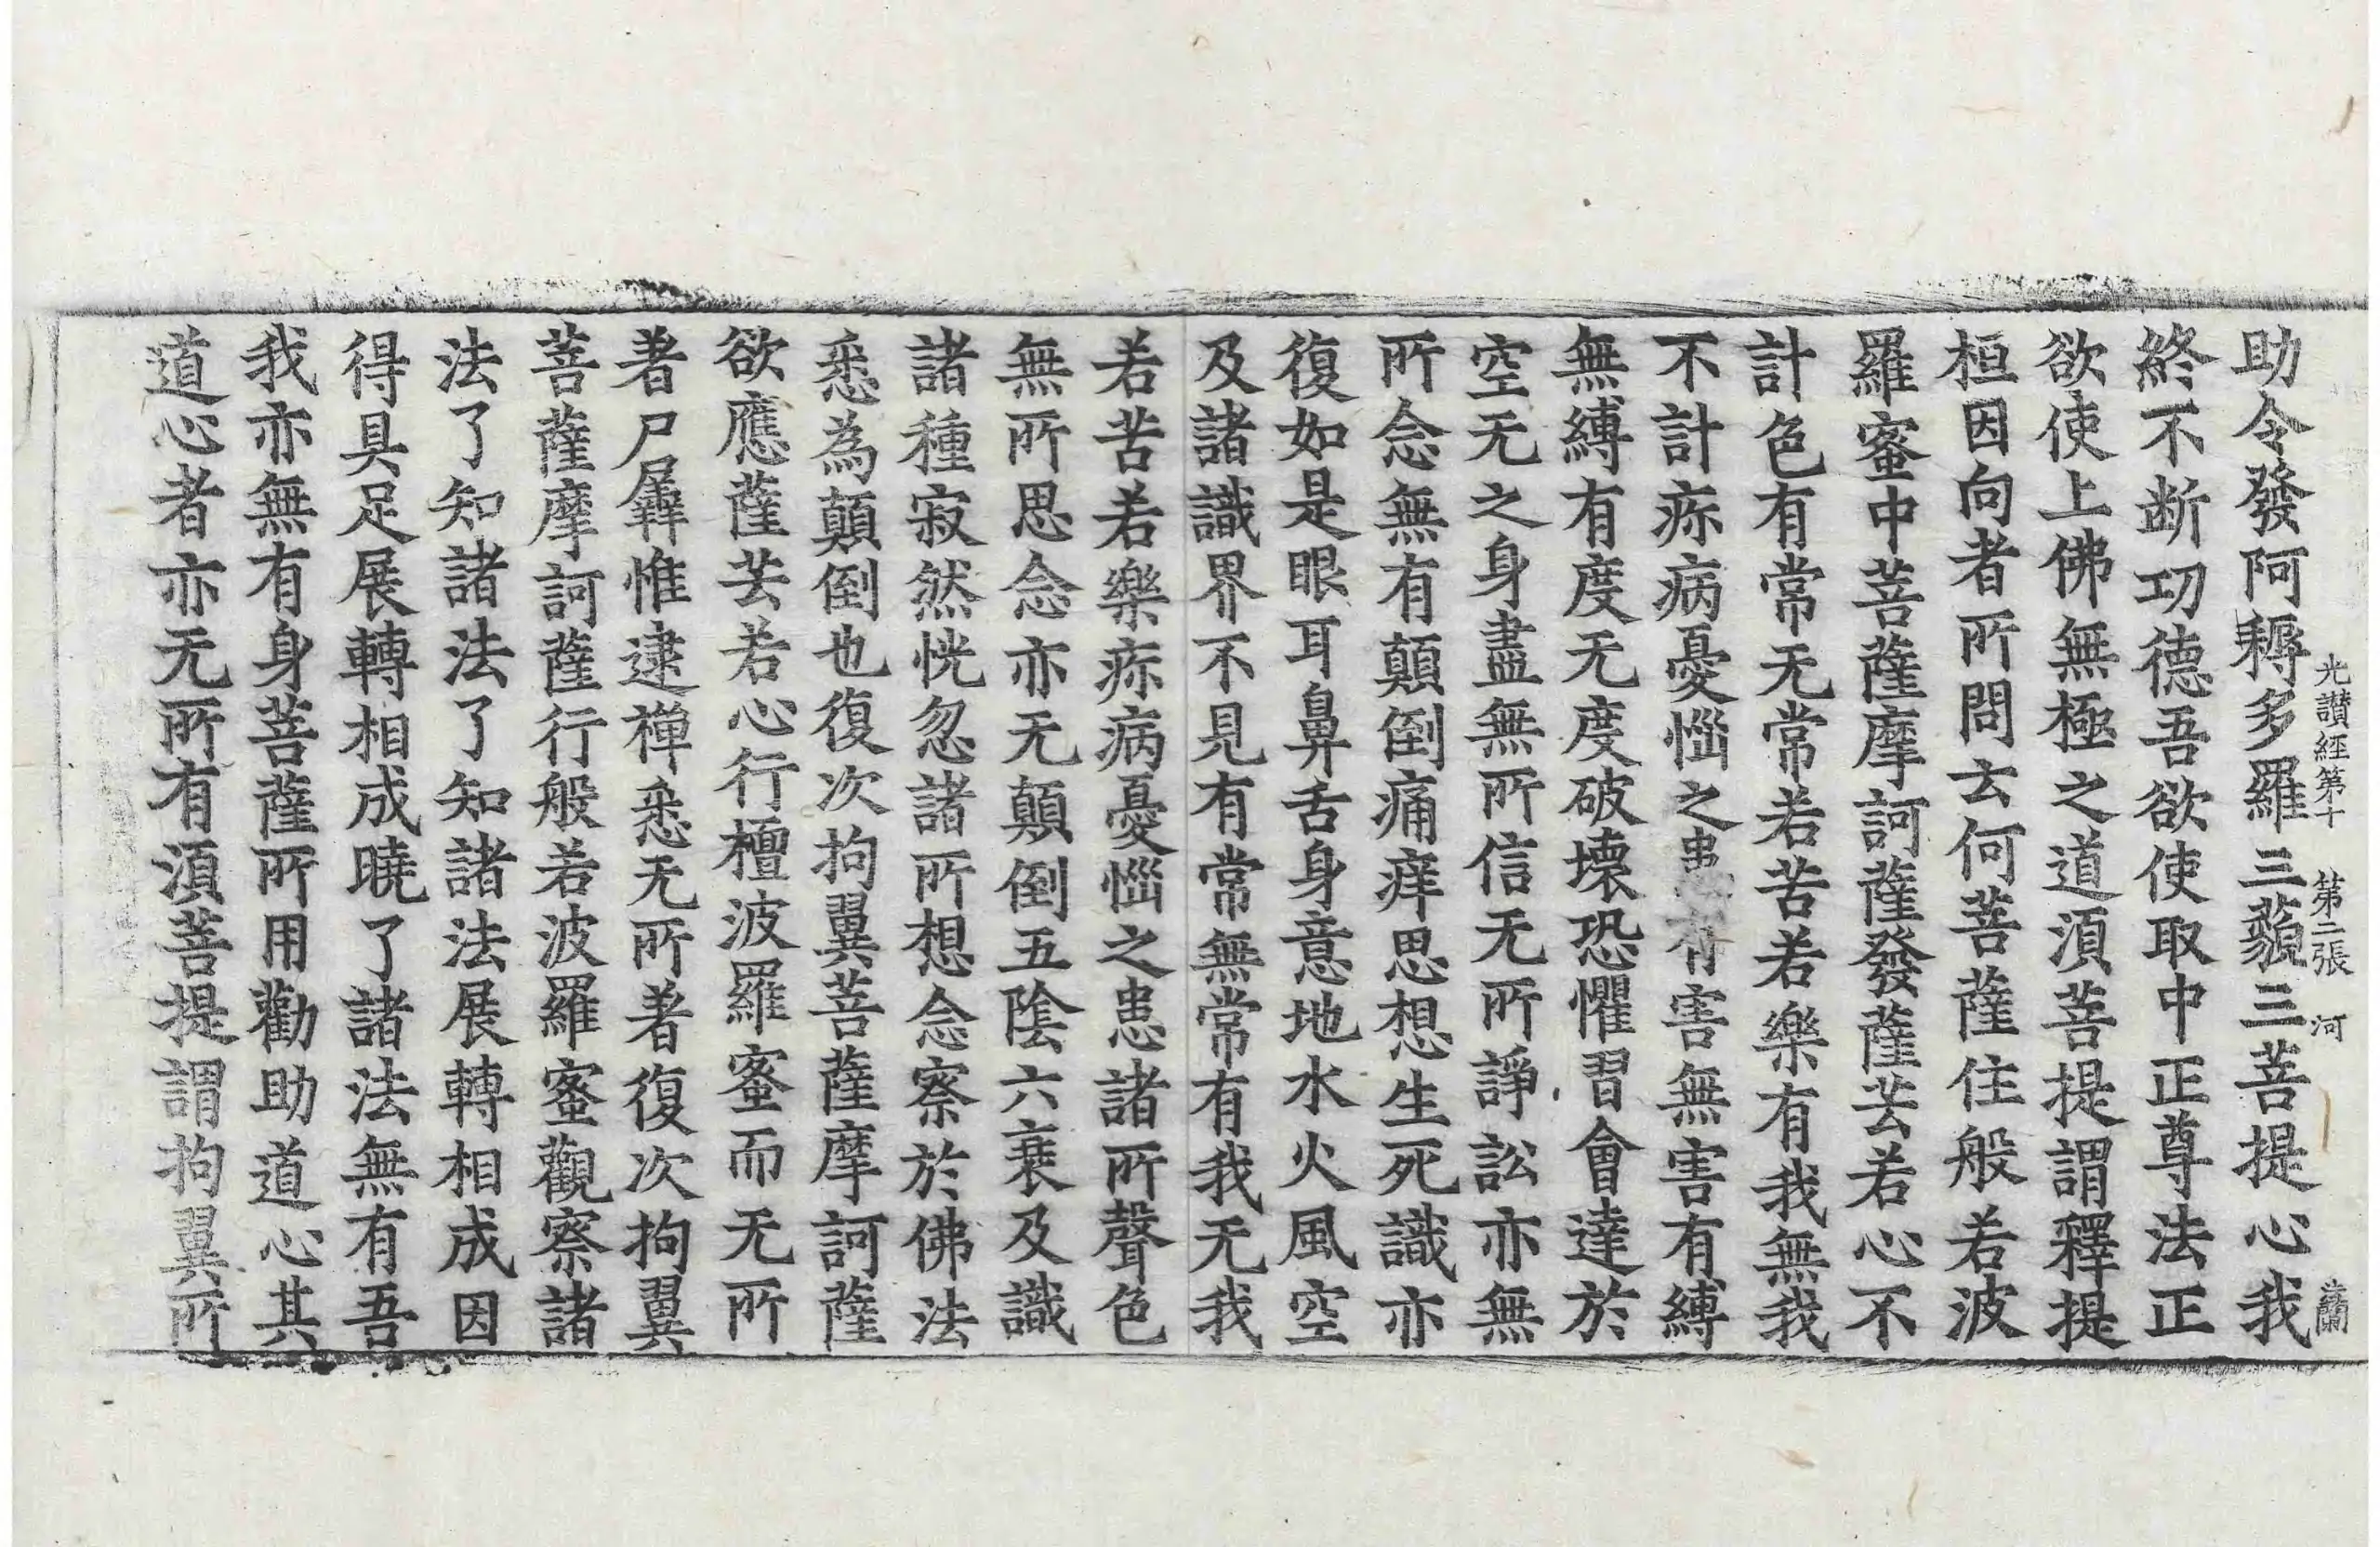 光讃經第十 第二張 河
助令發阿耨多羅三藐三菩提心我
終不断功德吾欲使取中正尊法正
欲使上佛無極之道湏菩提謂釋提
桓因向者所問云何菩薩住般若波
羅蜜中菩薩摩訶薩發薩芸若心不
計色有常无常若苦若樂有我無我
不計疢病憂惱之患有害無害有縛
無縛有度无度破壞恐懼習會達於
空无之身盡無所信无所諍訟亦無
所念無有顛倒痛痒思想生死識亦
復如是眼耳鼻舌身意地水火風空
及諸識界不見有常無常有我无我
若苦若樂疢病憂惱之患諸所聲色
無所思念亦无顛倒五陰六衰及識
諸種寂然恍忽諸所想念察於佛法
悉為顛倒也復次拘翼菩薩摩訶薩
欲應薩芸若心行檀波羅蜜而无所
著尸羼惟逮禅悉无所著復次拘翼
菩薩摩訶薩行般若波羅蜜觀察諸
法了知諸法了知諸法展轉相成因
得具足展轉相成曉了諸法無有吾
我亦無有身菩薩所用勸助道心其
道心者亦无所有湏菩提謂拘翼所